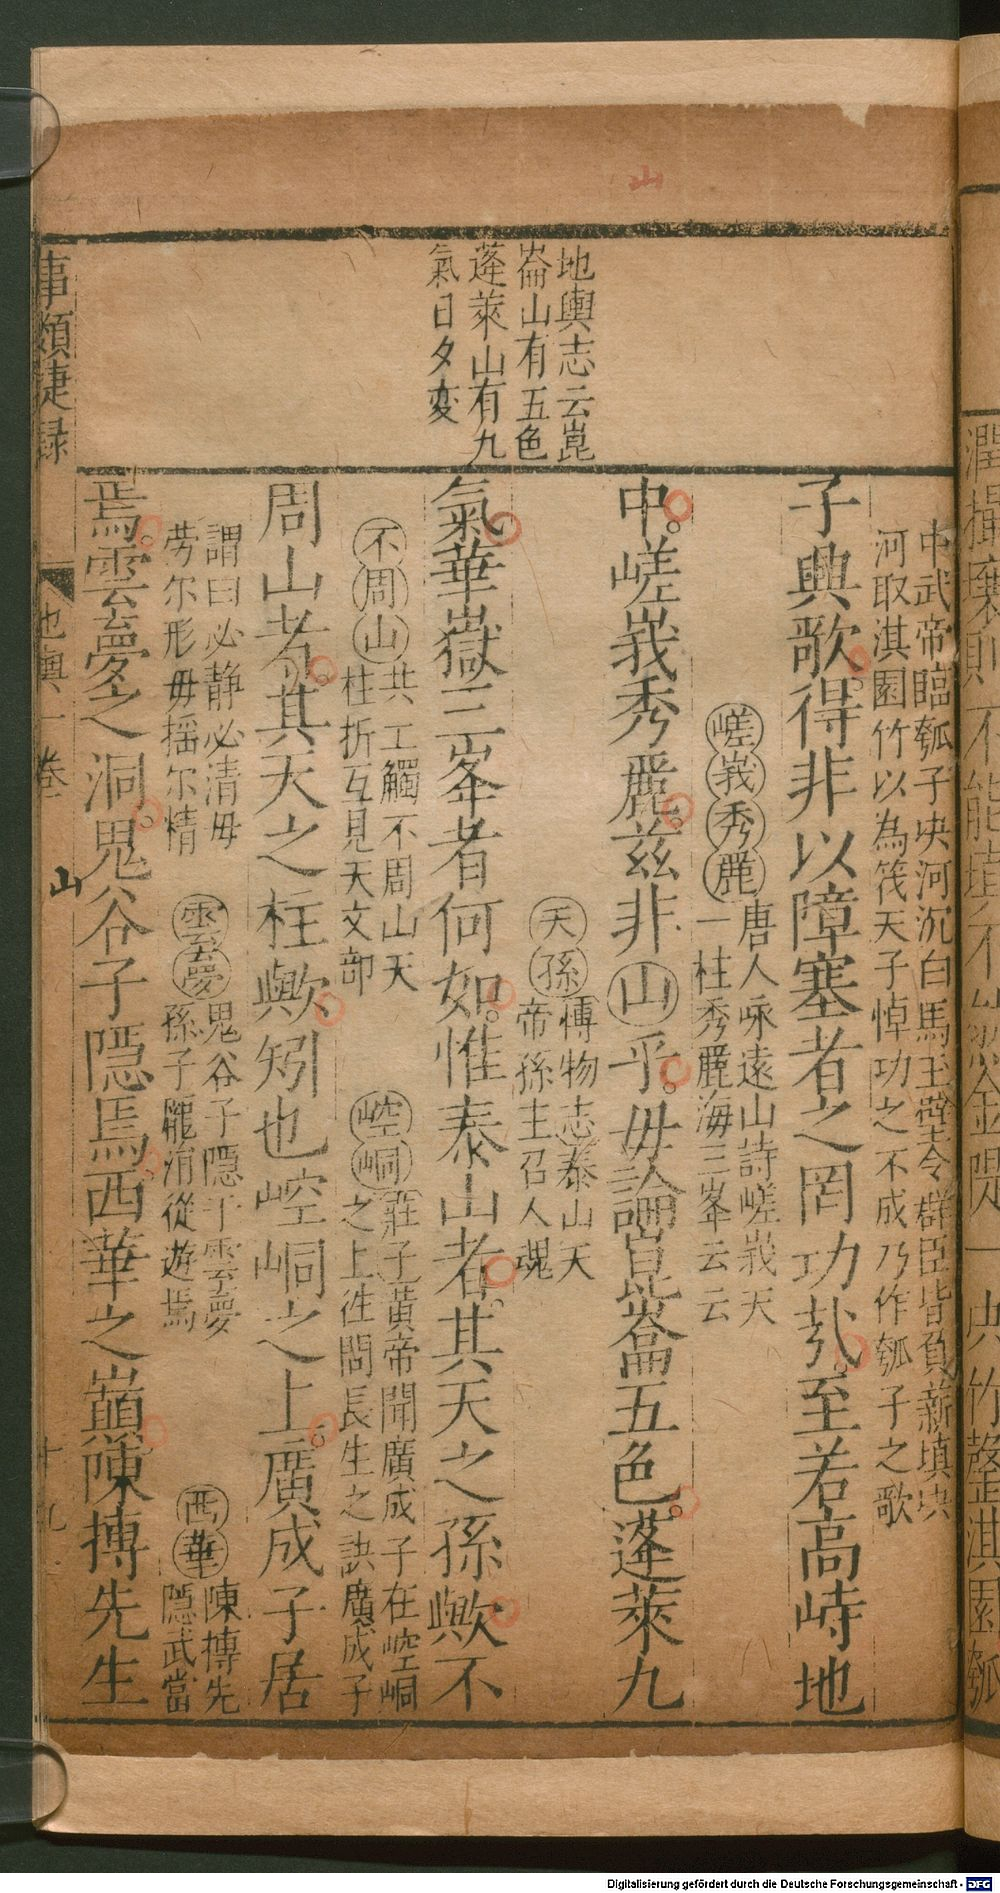 山
地輿志云崑
崙山有五色
蓬萊山有九
氣日夕変
中武帝臨瓠子决河沉白馬玉璧令群臣皆負薪填决
河取淇園竹以為筏天子悼功之不成乃作瓠子之歌
子興歌得非以障塞者之罔功㢤至若高峙地
嵯峩秀麗
唐人咏遠山詩嵯峩天
一柱秀麗海三峯云云
中嵯峩秀麗茲非山乎毋論崑崙五色蓬萊九
天孫
博物志泰山天
帝孫主召人魂
氣華嶽三峯者何如惟泰山者其天之孫歟不
不周山
共工觸不周山天
柱折互見天文部
崆峒
莊子黃帝聞廣成子在崆峒
之上徃問長生之訣廣成子
周山者其天之柱歟矧也崆峒之上廣成子居
謂曰必静必清毋
労尔形毋摇尔精
雲夢
鬼谷子隱于雲夢
孫子龐涓從遊焉
西華
陳摶先
隱武當
焉雲夢之洞鬼谷子隱焉西華之巔陳摶先生
事類捷録
地輿一卷
山
十九
淇園瓠
Digitalisierung gefördert durch die Deutsche Forschungsgemeinschaft - DFG